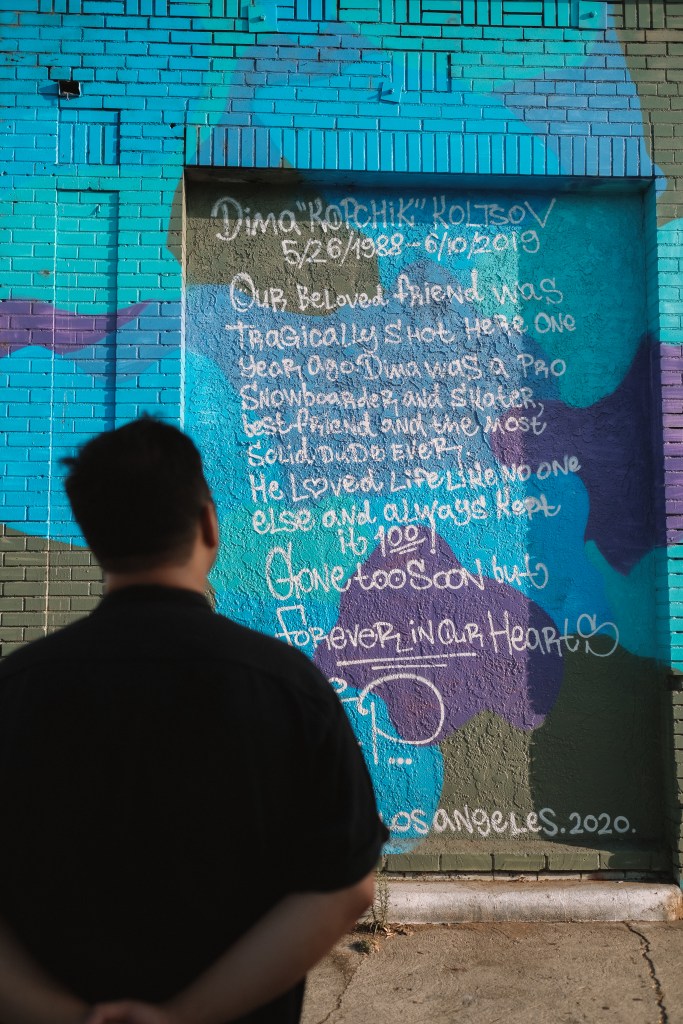 Dima "KOPCHIK" KOLTSOV
5/26/1988-6/10/2019
Our Beloved friend was
Tragically shot Here One
year ago. Dima was a Pro
Snowboarder and Skater,
best friend and the most
Solid DUDE EVER.
He Loved Life Like no one
else and always kept
it 100!
Gone too Soon but
Forever in Our Hearts
Los Angeles. 2020.